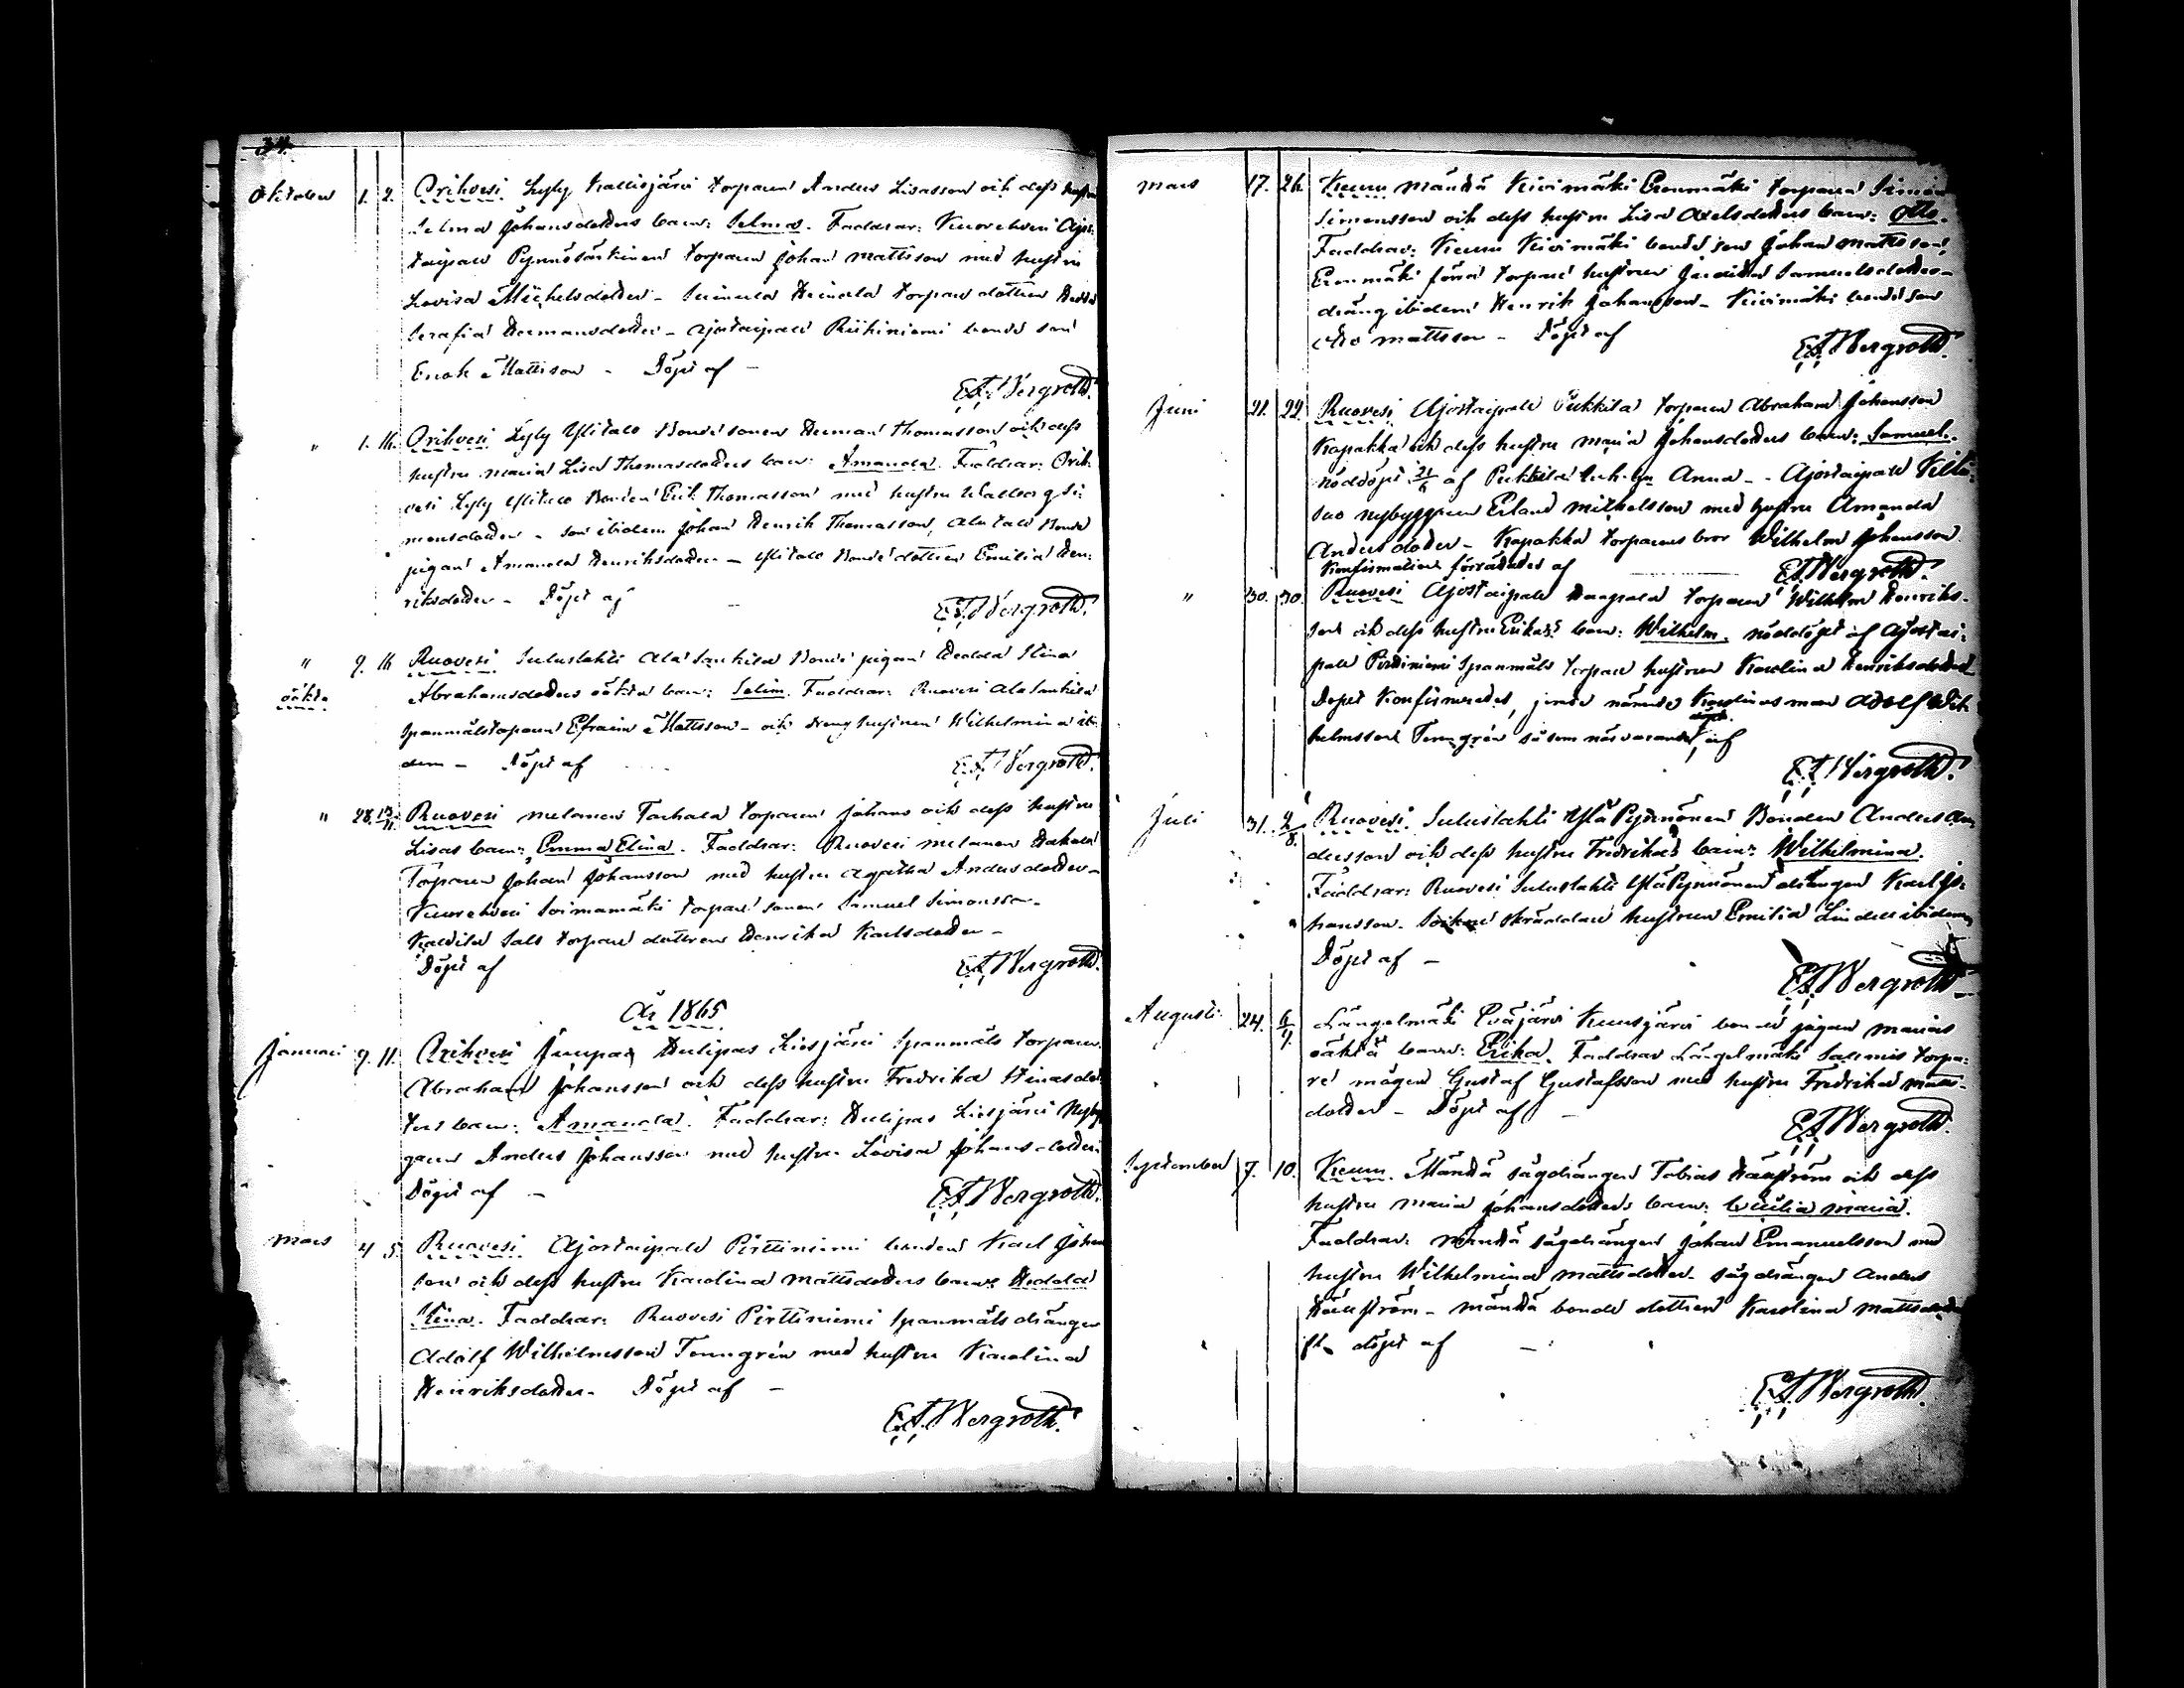 34.
Oktober 1. 2. Orihvesi Lyly Kallisjärvi torparen Anders Lisasson och dess hustru
Selma Johansdotters barn: Selma. Faddrar: Kuorehvesi Ajos-
taipale Pynnösärkinen torparen Johan Mattsson med hustru
Lovisa Michelsdotter - Torpare dottren Hedda
Serafia Hermansdotter - Ajostaipale Riihiniemi bonde son
Enok Mattsson - Döpt af -
E.A. Bergroth.
" 1. 16. Orihvesi Lyly Ylitalo Bonde sonen Herman Thomasson och dess
hustru Maria Lisa Thomasdotters barn: Amanda. Faddrar: Orih-
vesi Lyly Ylitalo Bonden Erik Thomasson med hustru Walborg Si-
monsdotter - son ibidem Johan Henrik Thomasson, Alatalo Bonde
pigan Amanda Henriksdotter - Ylitalo Bonde dottren Emilia Hen-
riksdotter - Döpt af -
E.A. Bergroth.
" 9. 16 Ruovesi Suluslahti Ala Bonde pigan Hedda Stina
oäkta Abrahamsdotters oäkta barn: Selim. Faddrar: Ruovesi Ala
Spanmålstorparen Efraim Mattsson - och dreng hustrun Wilhelmina ibi-
dem - Döpt af
E.A. Bergroth.
" 28. 13/11. Ruovesi Melanen Torhala torparen Johans och dess hustru
Lisas barn: Emma Elina. Faddrar: Ruovesi Melanen
Torparen Johan Johansson med hustru Agatha Andersdotter -
Kuorehvesi Soimamäki torpare sonen Samuel Simonsson -
Salo torpare dottren Henrika Karlsdotter -
Döpt af E.A. Bergroth.
År 1865
Januari 9. 11. Orihvesi Juupa Hulipas Liesjärvi Spanmåls torparen
Abraham Johansson och dess hustru Fredrika Stinasdot-
ters barn: Amanda. Faddrar: Hulipas Liesjärvi Nybyg-
garen Anders Johansson med hustru Lovisa Johansdotter
Döpt af - E.A. Bergroth.
Mars 4 5. Ruovesi Ajostaipale Pirttiniemi bonden Karl Johans-
son och dess hustru Karolina Mattsdotters barn: Hedda
Stina. Faddrar: Ruovesi Pirttiniemi Spanmåls drängen
Adolf Wilhelmsson Tenngrén med hustru Karolina
Henriksdotter. Döpt af -
E.A. Bergroth.
Mars 17. 26. Keuru Mänttä Kivimäki Eronmäki torparen Simon
Simonsson och dess hustru Lisa Axelsdotters barn: Otto.
Faddrar: Keuru Kivimäki bonde son Johan Mattsson,
Eronmäki förra torpare hustrun Samuelsdotter -
dräng ibidem Henrik Johansson - Kivimäki bonde son
Mattsson - Döpt af
E.A. Bergroth.
Juni 21. 22. Ruovesi Ajostaipale Pukkila torparen Abraham Johansson
Kapakka och dess hustru Maria Johansdotters barn: Samuel.
nöddöpt 21/6 af Pukkila Anna - Ajostaipale
suo nybyggaren Erland Michelsson med hustru Amanda
Andersdotter - Kapakka torparens bror Wilhelm Johansson.
Konfirmationen förrättades af E.A. Bergroth.
" 30. 30. Ruovesi Ajostaipale Haapala torparen Wilhelm Henriks-
son och dess hustru Erikas barn: Wilhelm. nöddöpt af Ajostai-
pale Pirttiniemi Spanmåls torpare hustrun Karolina Henriksdotter
Dopet Konfirmerades, jemte nämnde Karolinas man Adolf Wil-
helmsson Tenngrén såsom närvarande, af
E.A. Bergroth.
Juli 31. 2/8. Ruovesi. Suluslahti Ylä Pynnönen Bonden Anders An-
dersson och dess hustru Fredrikas barn: Wilhelmina.
Faddrar: Ruovesi Suluslahti Ylä Pynnönen drängen Karl Jo-
hansson. Socken skräddare hustrun Emilia Lindell ibidem
Döpt af -
E.A. Bergroth
Augusti 24. 6/9. Längelmäki Eväjärvi Kuusjärvi bonde pigan Marias
oäkta barn: Erika. Faddrar Längelmäki Salmis torpa-
re mågen Gustaf Gustafsson med hustru Fredrika Matts-
dotter - Döpt af -
E.A. Bergroth.
September 7. 10. Keuru. Mänttä sågdrängen Tobias och dess
hustru Maria Johansdotters barn: Cecilia Maria.
Faddrar: Mänttä sågdrängen Johan Emanuelsson med
hustru Wilhelmina Mattsdotter - sågdrängen Anders
- Mänttä bonde dottren Karolina Mattsdotter
döpt af -
E.A. Bergroth.